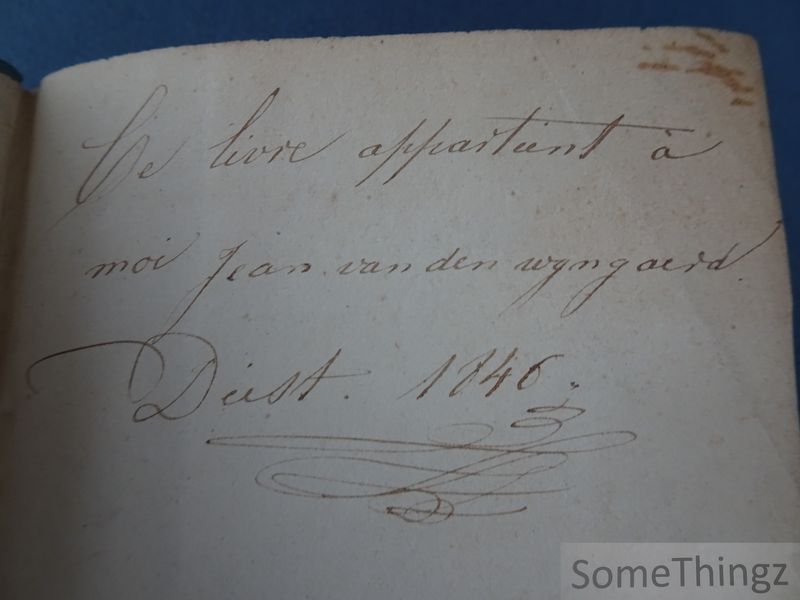 Ce livre appartient à
moi Jean van den wyngaerd.
Diest. 1846.
SomeThingz